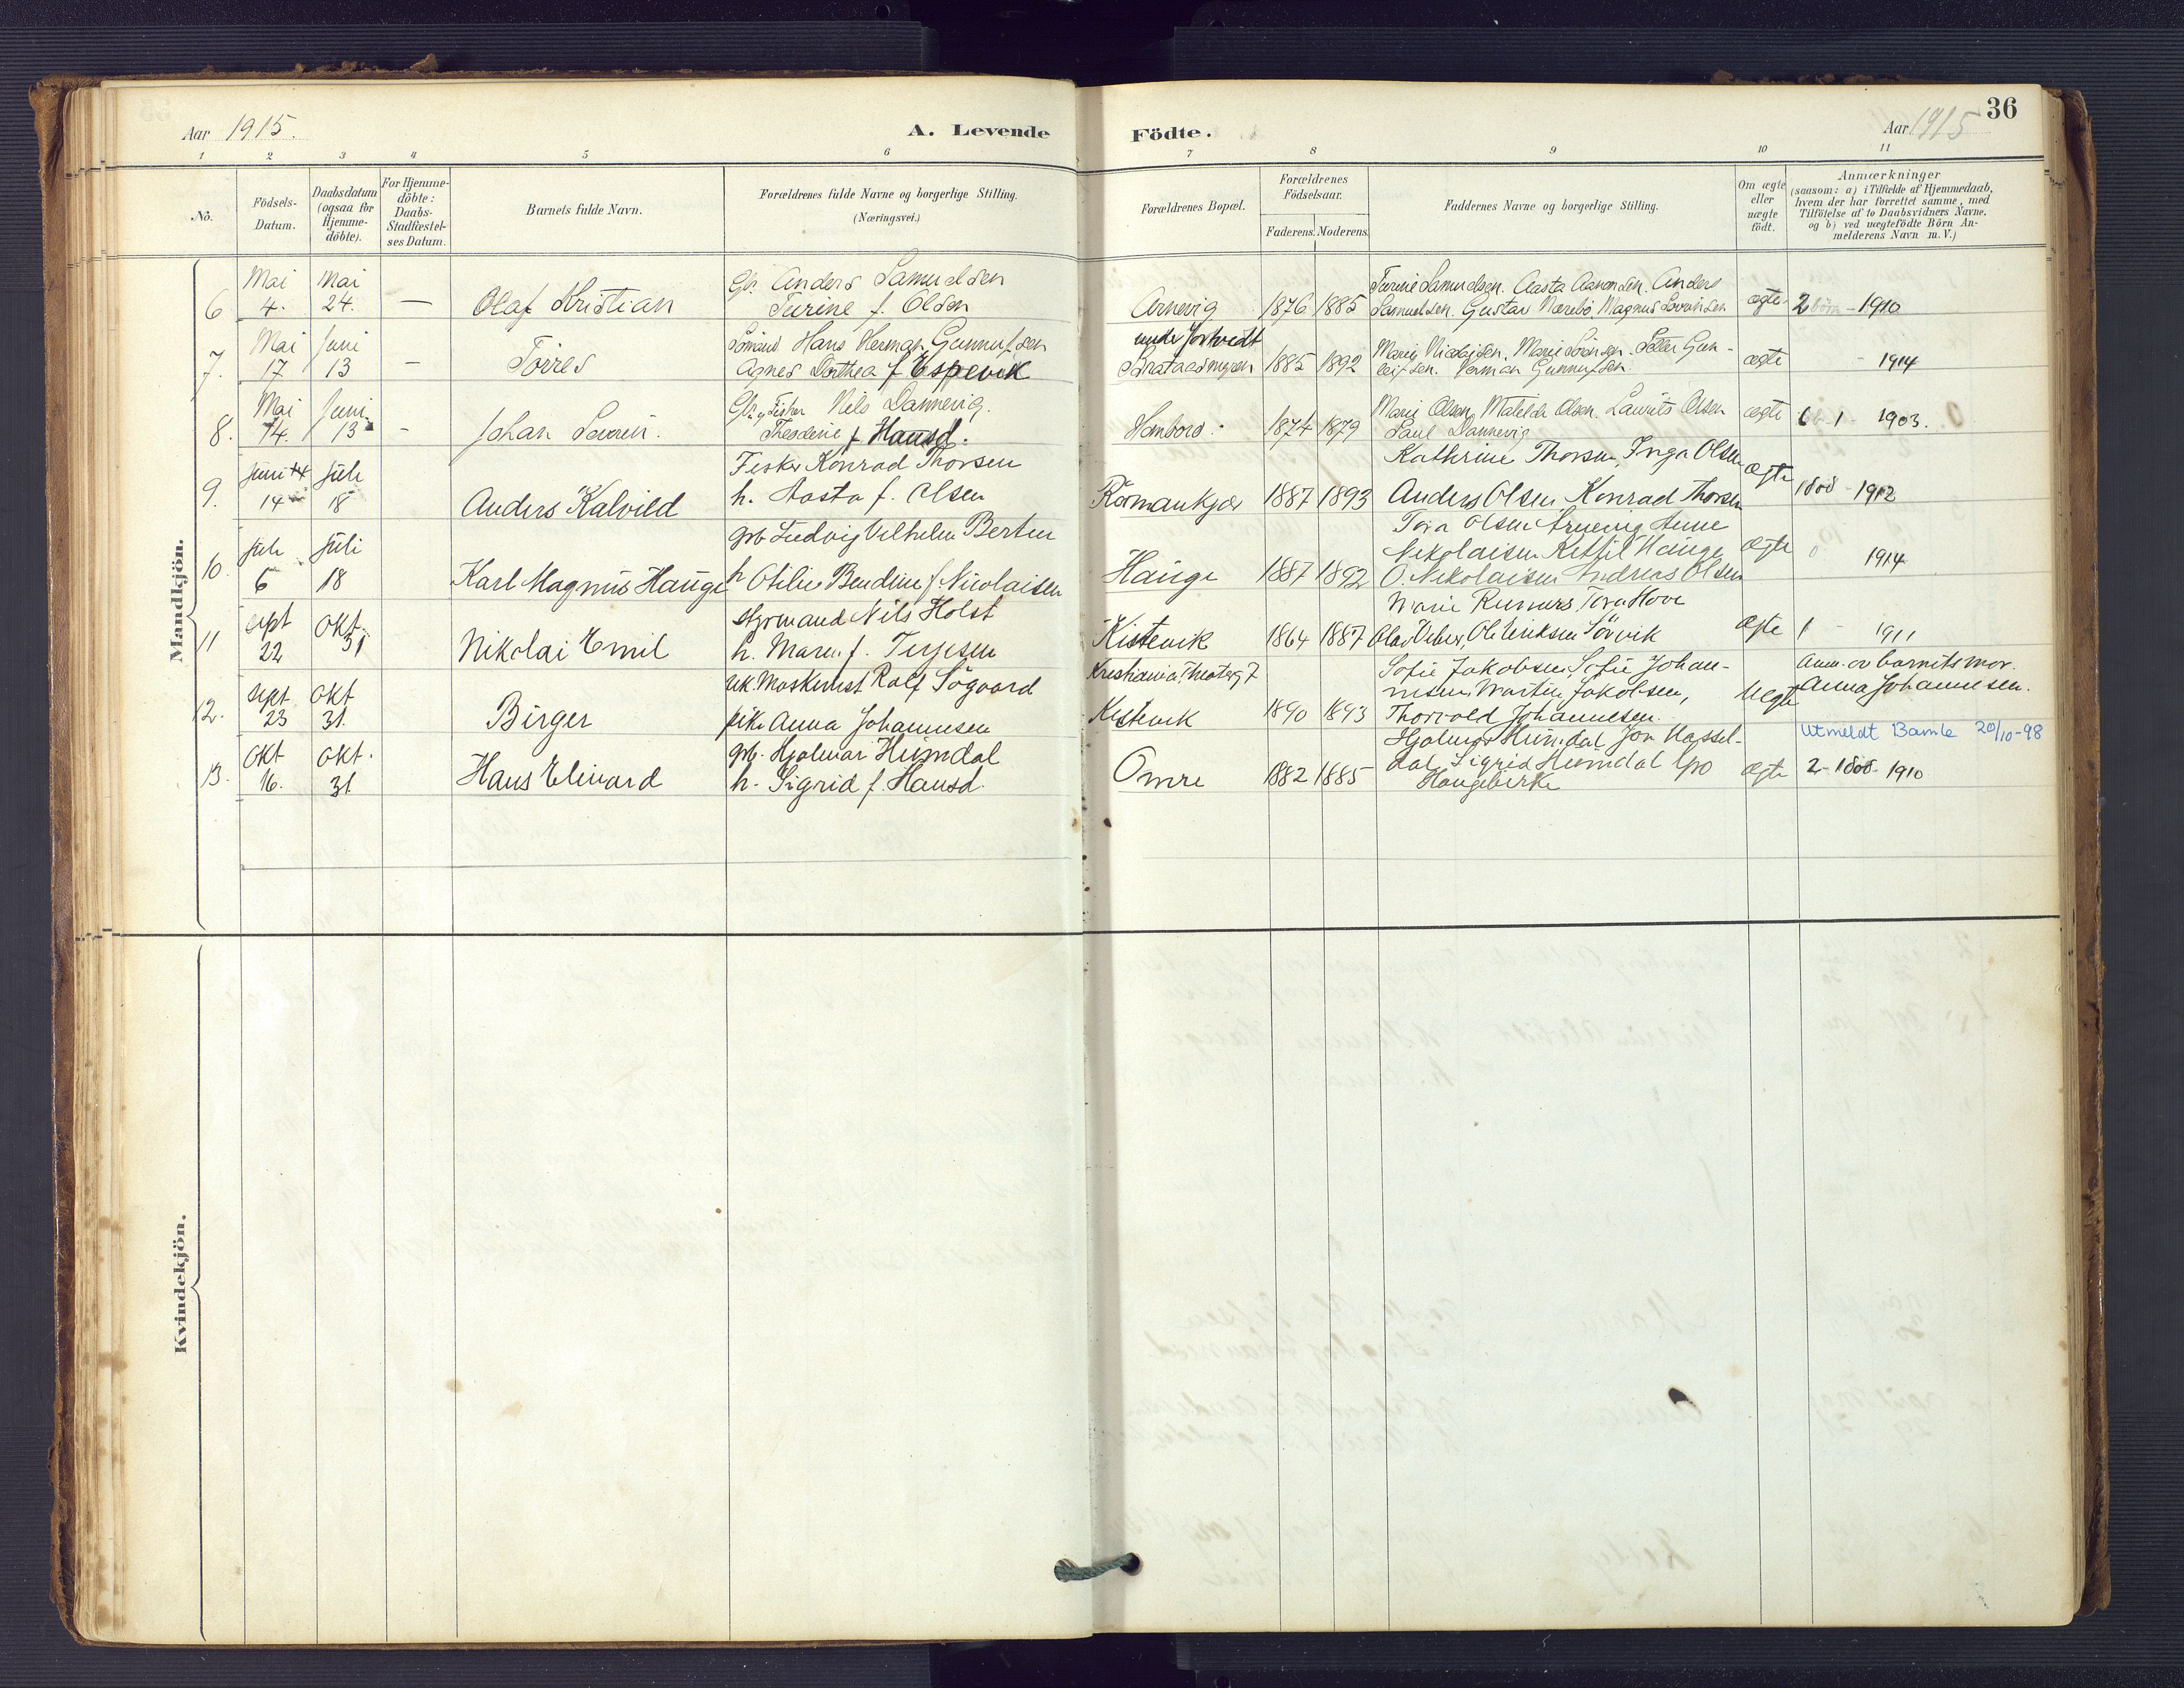 36
Aar 1915.
A. Levende
Födte.
Aar 1915
1 2 3 4 5 6 7 8 9 10 11
No.
Födsels-
Datum.
Daabsdatum
(ogsaa for
Hjemme-
döbte).
For Hjemme-
döbte:
Daabs-
Stadfæstel-
ses Datum.
Barnets fulde Navn.
Forældrenes fulde Navne og borgerlige Stilling.
(Næringsvei.)
Forældrenes Bopæl.
Forældrenes
Födselsaar.
Faderens. Moderens.
Faddernes Navne og borgerlige Stilling.
Om ægte
eller
uægte
födt.
Anmærkninger
(saasom: a) i Tilfælde af Hjemmedaab,
hvem der har forrettet samme, med
Tilföielse af to Daabsvidners Navne,
og b) ved uægtefödte Börn An-
melderens Navn m. V.)
Mandkjön.
Mai Mai Gbr. Anders Samuelsen Turine Samuelsen. Aasta Aanonsen. Anders
6 4. 24. — Olaf Kristian Turine f. Olsen Arnevig 1876 1885 Samuelsen. Gustav Mærebö. Magnus ægte 2 börn - 1910
Mai Juni Sömand Hans Herman Gunnufsen under Jortveit
7. 17 13 — Törres Agnes Dorthea f. Espevik 1885 1892 Marie Nicolaisen. Marie Sörensen. Herman Gunnufsen. ægte - 1914
Mai Juni Gbr. og Fisker Nils Dannevig. Marie Olsen, Matilde Olsen. Laurits Olsen
8. 14. 13 - Johan Severin. f. Hansd. Homborö. 1874 1879 Paul Dannevig ægte 6 - 1 1903.
Juni Juli Fisker Konrad Thorsen Kathrine Thorsen, Inga Olsen
9. 14 18 Anders Kalvild h. Aasta f. Olsen 1887 1893 Anders Olsen Konrad Thorsen ægte 1 död 1912
Juli Juli gbr Ludvig Vilhelm Berten Tora Olsen Arnevig Anne
Nikolaisen Kettil Hauge
10. 6 18 Karl Magnus Hauge h Otilie Bendine f. Nicolaisen Hauge 1887 1892 O. Nikolaisen Andreas Olsen ægte 0 1914
sept Okt. styrmand Nils Holst Marie Tora Hove
11 22 31 Nikolai Emil h. Maren f. Terjesen Kistevik 1864 1887 Ole Eriksen Sörvik ægte 1 - 1911
sept Okt uk. Maskinist Ralf Sögaard Kristiania Theaterg 7 Sofie Jakobsen, Sofie Johan-
nesen, Martin Jakobsen, Anm. av barnets mor.
12. 23 31. Birger pike Anna Johannesen Kistevik 1890 1893 Thorvald Johannesen. Uegte Anna Johannesen.
Utmeldt Bamle 20/10-98
Okt Okt. gbr. Hjalmar Heimdal Hjalmar Heimdal, Jon Hassel-
13. 16. 31 Hans Edvard h. Sigrid f. Hansd. Omre 1882 1885 dal, Sigrid Heimdal ægte 2 - 1 död - 1910
Haugebirke
Kvindekjön.